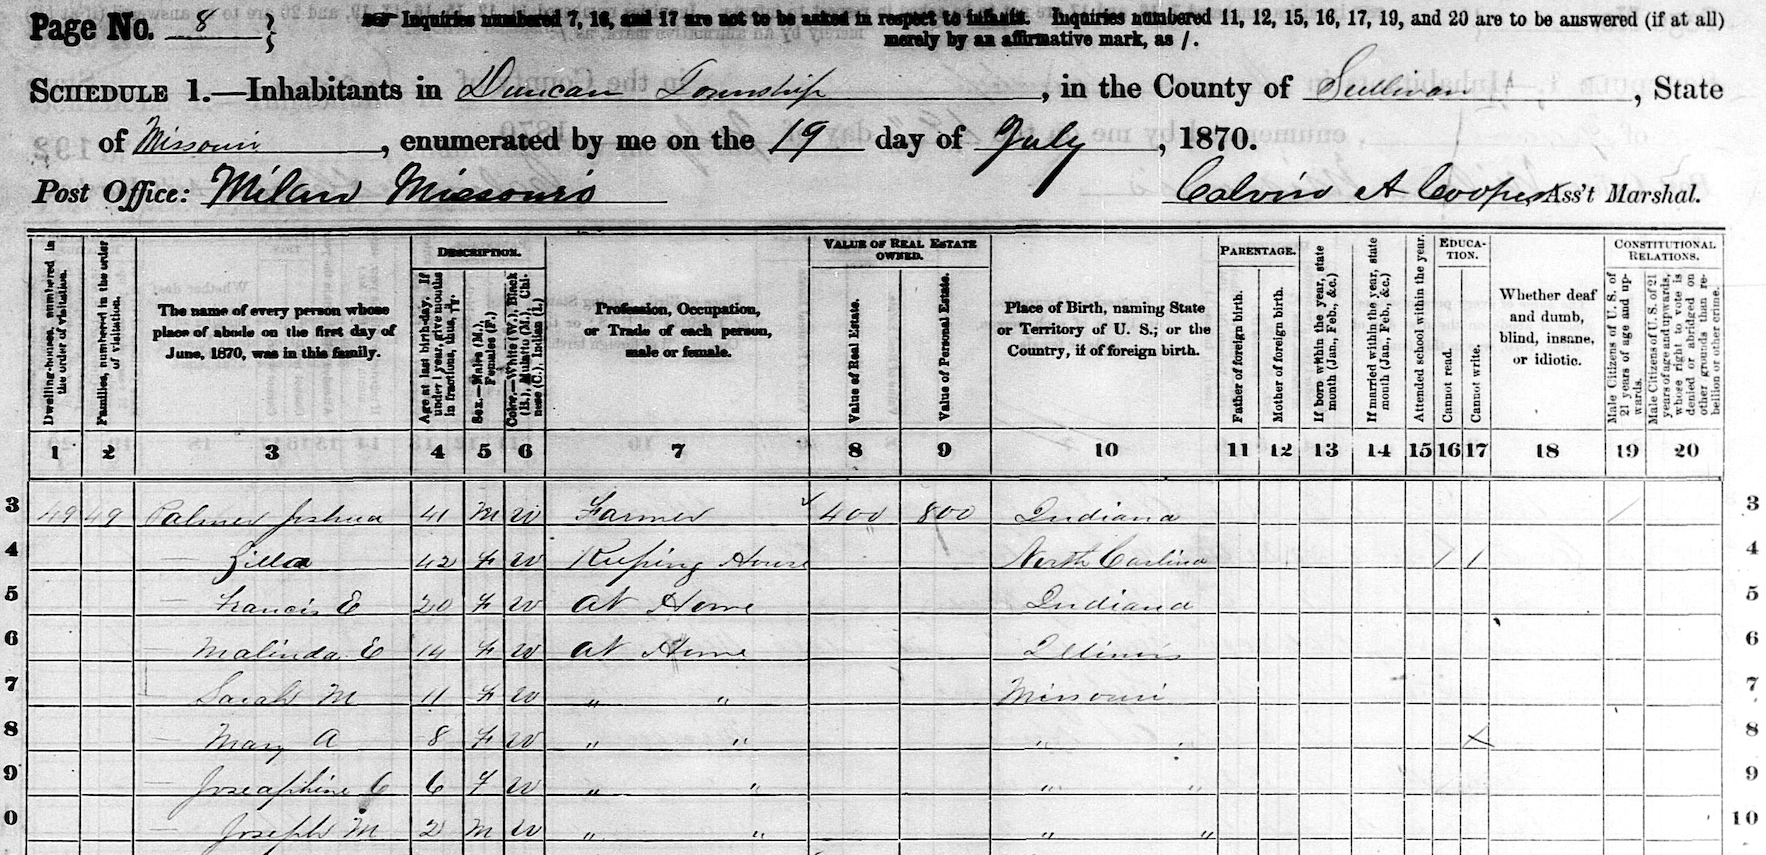 Page No. 8
Inquiries numbered 7, 16, and 17 are not to be asked in respect to infants. Inquiries numbered 11, 12, 15, 16, 17, 19, and 20 are to be answered (if at all)
merely by an affirmative mark, as /.
SCHEDULE 1.—Inhabitants in Duncan Township, in the County of Sullivan, State
of Missouri, enumerated by me on the 19 day of July, 1870.
Post Office: Milan Missouri Calvin A Cooper, Ass't Marshal.
Dwelling-houses, numbered in the order of visitation.
Families, numbered in the order of visitation.
The name of every person whose place of abode on the first day of June, 1870, was in this family.
DESCRIPTION.
Age at last birth-day. If under 1 year, give months in fractions, thus,
Sex.—Males (M.), Females (F.)
Color.—White (W.), Black (B.), Mulatto (M.), Chinese (C.), Indian (I.)
Profession, Occupation, or Trade of each person, male or female.
VALUE OF REAL ESTATE OWNED.
Value of Real Estate.
Value of Personal Estate.
Place of Birth, naming State or Territory of U. S.; or the Country, if of foreign birth.
PARENTAGE.
Father of foreign birth.
Mother of foreign birth.
If born within the year, state month (Jan., Feb., &c.)
If married within the year, state month (Jan., Feb., &c.)
Attended school within the year.
EDUCATION.
Cannot read.
Cannot write.
Whether deaf and dumb, blind, insane, or idiotic.
CONSTITUTIONAL RELATIONS.
Male Citizens of U. S. of 21 years of age and upwards.
Male Citizens of U. S. of 21 years of age and upwards, whose right to vote is denied or abridged on other grounds than rebellion or other crime.
1 2 3 4 5 6 7 8 9 10 11 12 13 14 15 16 17 18 19 20
3 49 49 Palmer Joshua 41 M W Farmer 400 800 Indiana / 3
4 — Zilla 42 F W Keeping House North Carlina / / 4
5 — Francis E 20 F W At Home Indiana 5
6 — Malinda E 14 F W At Home Illinois 6
7 — Sarah M 11 F W " " Missouri 7
8 — Mary A 8 F W " " " " X 8
9 — Joseaphine C 6 F W " " " " 9
0 — Joseph M 2 M W " " " " 10